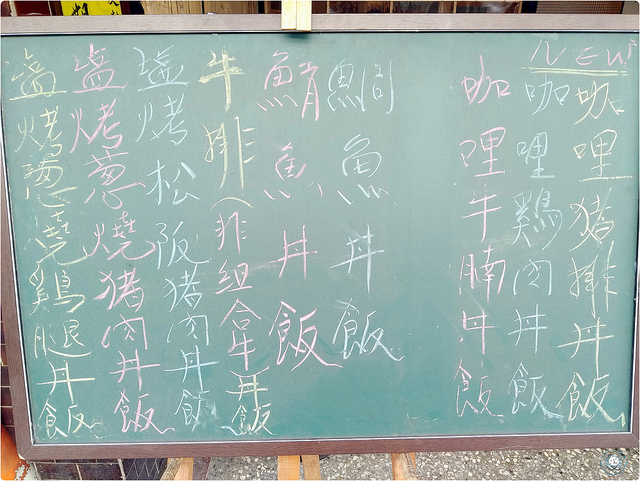 NEW
咖哩豬排丼飯
咖哩鷄肉丼飯
咖哩牛腩丼飯
鯛魚丼飯
鯖魚丼飯
牛排(非組合牛)丼飯
塩烤松阪豬肉丼飯
塩烤蔥燒豬肉丼飯
塩烤蔥燒鷄腿丼飯